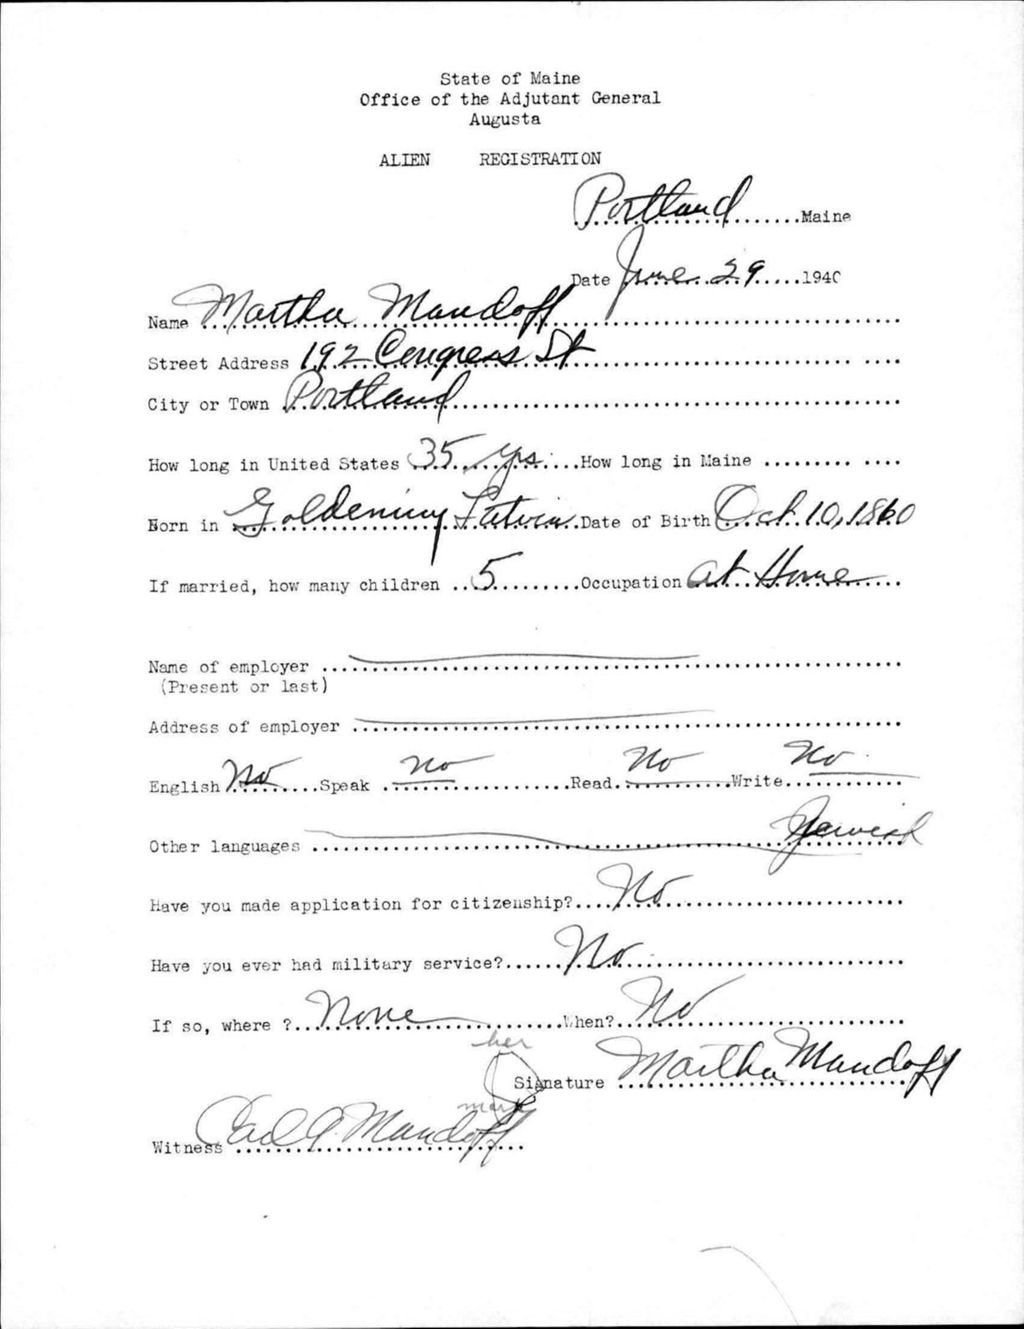 State of Maine
Office of the Adjutant General
Augusta
ALIEN REGISTRATION
Portland.......Maine
Date June 29.....1940
Name Martha Mandoff
Street Address 192 Congress St
City or Town Portland
How long in United States 35 yrs. How long in Maine ......... ....
Born in Latvia Date of Birth Oct. 10, 1860
If married, how many children 5 Occupation at Home
Name of employer
(Present or last)
Address of employer
English No Speak no Read No Write No
Other languages Jewish
Have you made application for citizenship? No
Have you ever had military service? No
If so, where ? None When? No
her
Signature Martha Mandoff
mark
Witness Carl A. Mandoff